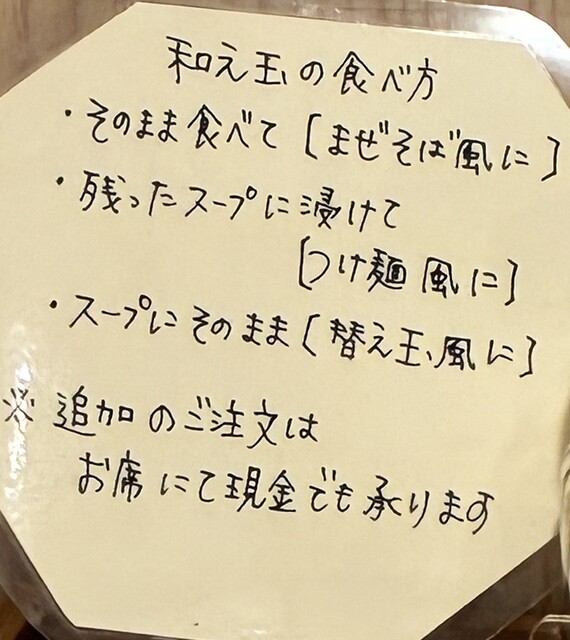 和え玉の食べ方
・そのまま食べて[まぜそば風に]
・残ったスープに浸けて
[つけ麺風に]
・スープにそのまま[替え玉風に]
※追加のご注文は
お席にて現金でも承ります